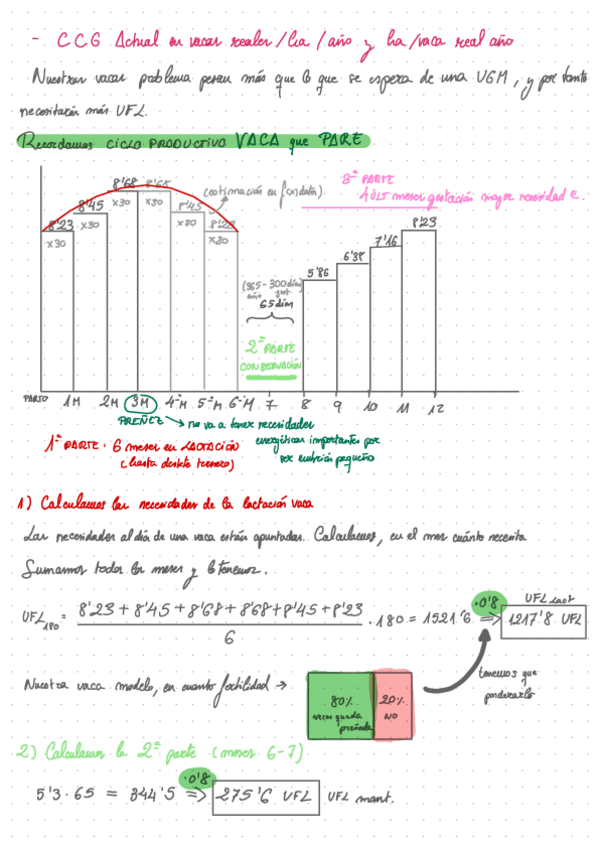 - CCG Actual en vacas reales / ha / año y ha / vaca real año
Nuestras vacas problema pesan más que lo que se espera de una UGM, y por tanto
necesitarán más UFL.
Recordamos CICLO PRODUCTIVO VACA que PARE
8'23 8'45 8'68 8'68 8'45 8'23
x30 x30 x30 x30 x30 x30
(estimación en fondata).
3ª PARTE
4 últ meses gestación mayor necesidad E.
5'86 6'38 7'16 8'23
(365-300 días)
año gest
65 días
2ª PARTE
CONSERVACIÓN
PARTO 1M 2M 3M 4ªM 5ªM 6ªM 7 8 9 10 11 12
PREÑEZ → no va a tener necesidades
energéticas importantes por
ser embrión pequeño
1ª PARTE · 6 meses en LACTACIÓN
(hasta destete ternero)
1) Calculamos las necesidades de la lactación vaca
Las necesidades al día de una vaca están apuntadas. Calculamos, en el mes cuánto necesita
Sumamos todos los meses y lo tenemos.
UFL180 = 8'23 + 8'45 + 8'68 + 8'68 + 8'45 + 8'23 / 6 · 180 = 1521'6 ·0'8 => 1217'8 UFL
UFL lact
Nuestra vaca modelo, en cuanto fertilidad →
80% vacas queda preñada
20% NO
tenemos que
ponderarlo
2) Calculamos la 2ª parte (meses 6-7)
5'3 · 65 = 344'5 ·0'8 => 275'6 UFL UFL mant.